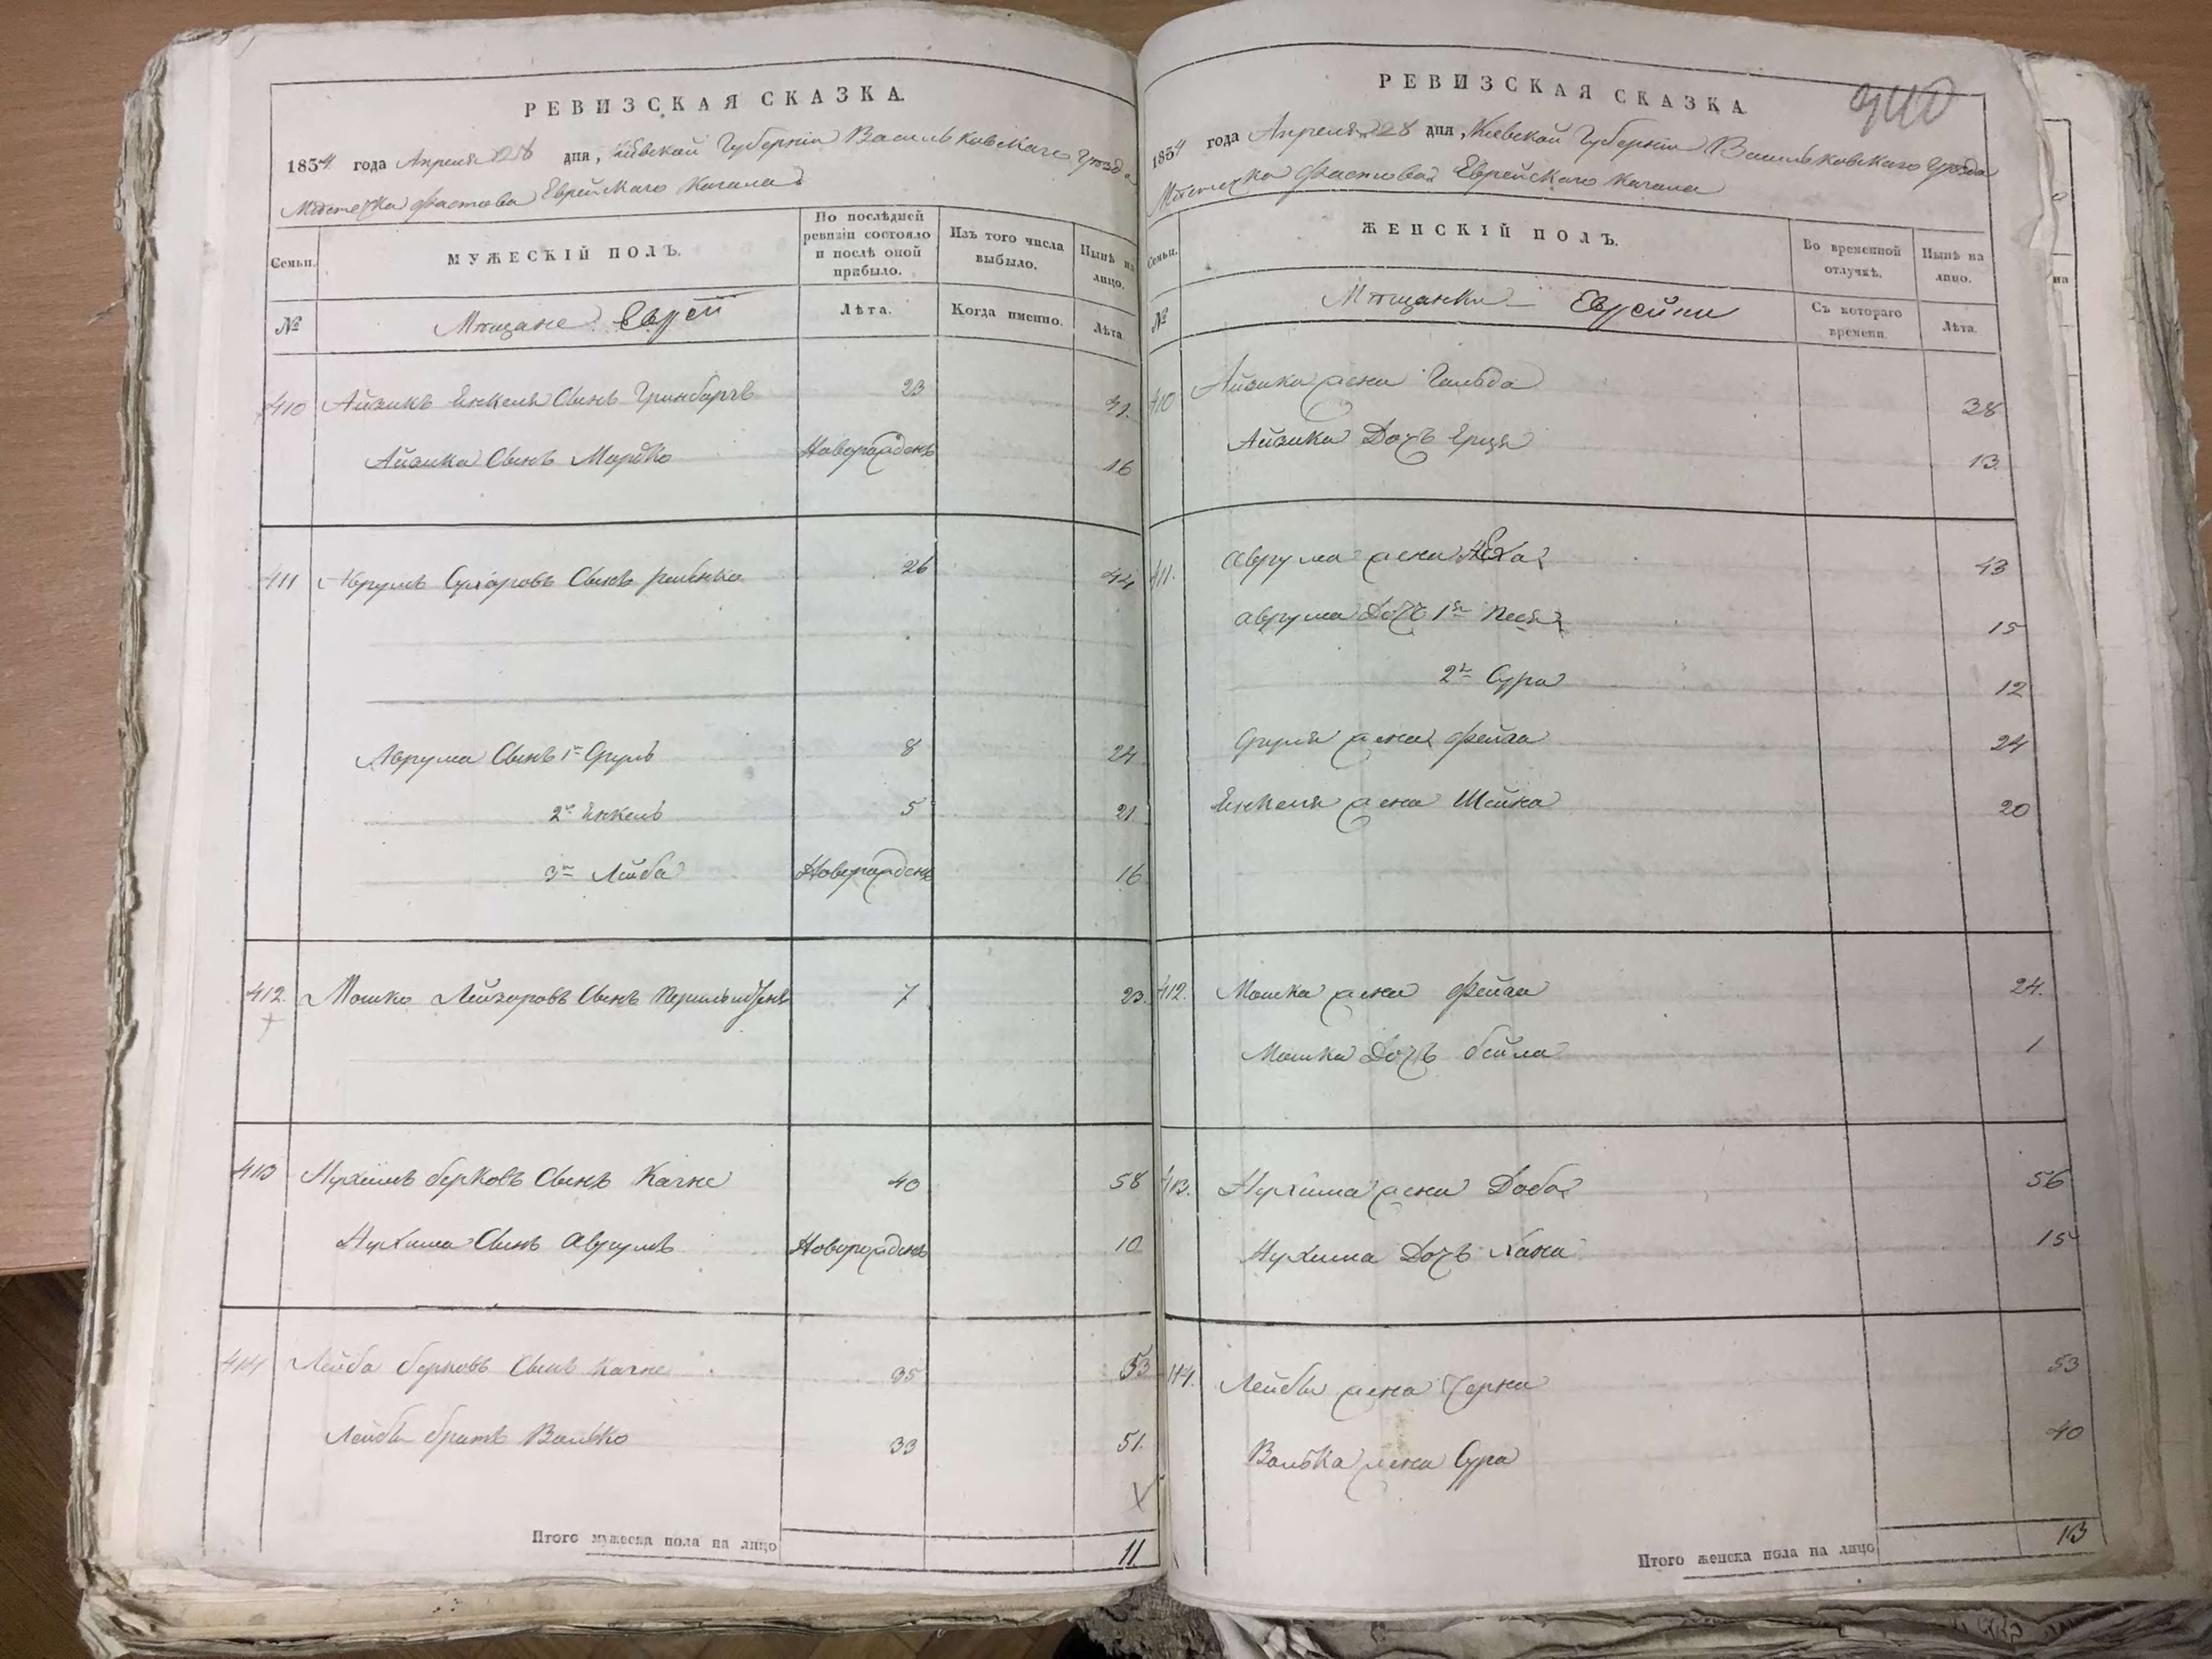 РЕВИЗСКАЯ СКАЗКА.
1854 года Апреля 28 дня, Кіевской Губерніи Васильковскаго Уѣзда
Мѣстечка Фастова Еврейскаго Кагала
Семьи.
МУЖЕСКІЙ ПОЛЪ.
По послѣдней ревизіи состояло и послѣ оной прибыло.
Изъ того числа выбыло.
Нынѣ на лицо.
№
Мѣщане Евреи
Лѣта.
Когда именно.
Лѣта.
410 Айзикъ Енкеля Сынъ Гринбаргъ 23 41.
Айзика Сынъ Мордко Новорожденъ 16
411 Аврумъ Сынъ 26 44
Аврума Сынъ 1й Сруль 8 24
2й Енкель 5 21
3й Лейба Новорожденъ 16
412. Мошко Лейзоровъ Сынъ 7 23.
413 Нухимъ Берковъ Сынъ Качке 40 58
Нухима Сынъ Аврумъ Новорожденъ 10
414 Лейба Берковъ Сынъ Качке 35 53
Лейбы братъ Волько 33 51.
Итого мужеска пола на лицо 11
РЕВИЗСКАЯ СКАЗКА.
1854 года Апреля 28 дня, Кіевской Губерніи Васильковскаго Уѣзда
Мѣстечка Фастова Еврейскаго Кагала
Семьи.
ЖЕНСКІЙ ПОЛЪ.
Во временной отлучкѣ.
Нынѣ на лицо.
№
Мѣщанки Еврейки
Съ котораго времени.
Лѣта.
410 Айзика жена Гольда 38
Айзика Дочь 13.
411. Аврума жена 43
Аврума Дочь 1я Песя 15
2я Сура 12
Сруля жена Фейга 24
Енкеля жена Шейна 20
412. Мошка жена Фейга 24.
Мошка Дочь Бейла 1
413. Нухима жена Доба 56
Нухима Дочь Хана 15
414. Лейбы жена Черна 53
Волька жена Сура 40
Итого женска пола на лицо 13